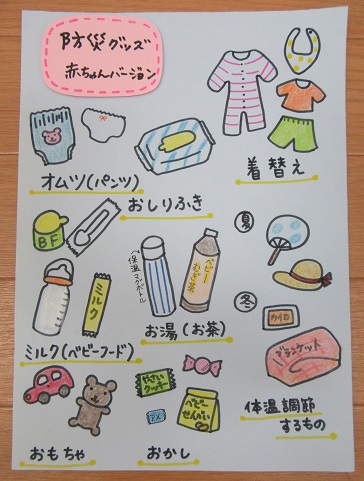 防災グッズ
赤ちゃんバージョン
オムツ(パンツ)
おしりふき
着替え
BF
ミルク
ミルク(ベビーフード)
保温マグボトル
ベビーむぎ茶
お湯(お茶)
夏
冬
カイロ
ブランケット
体温調節
するもの
おもちゃ
やさい
クッキー
ベビー
せんべい
おかし